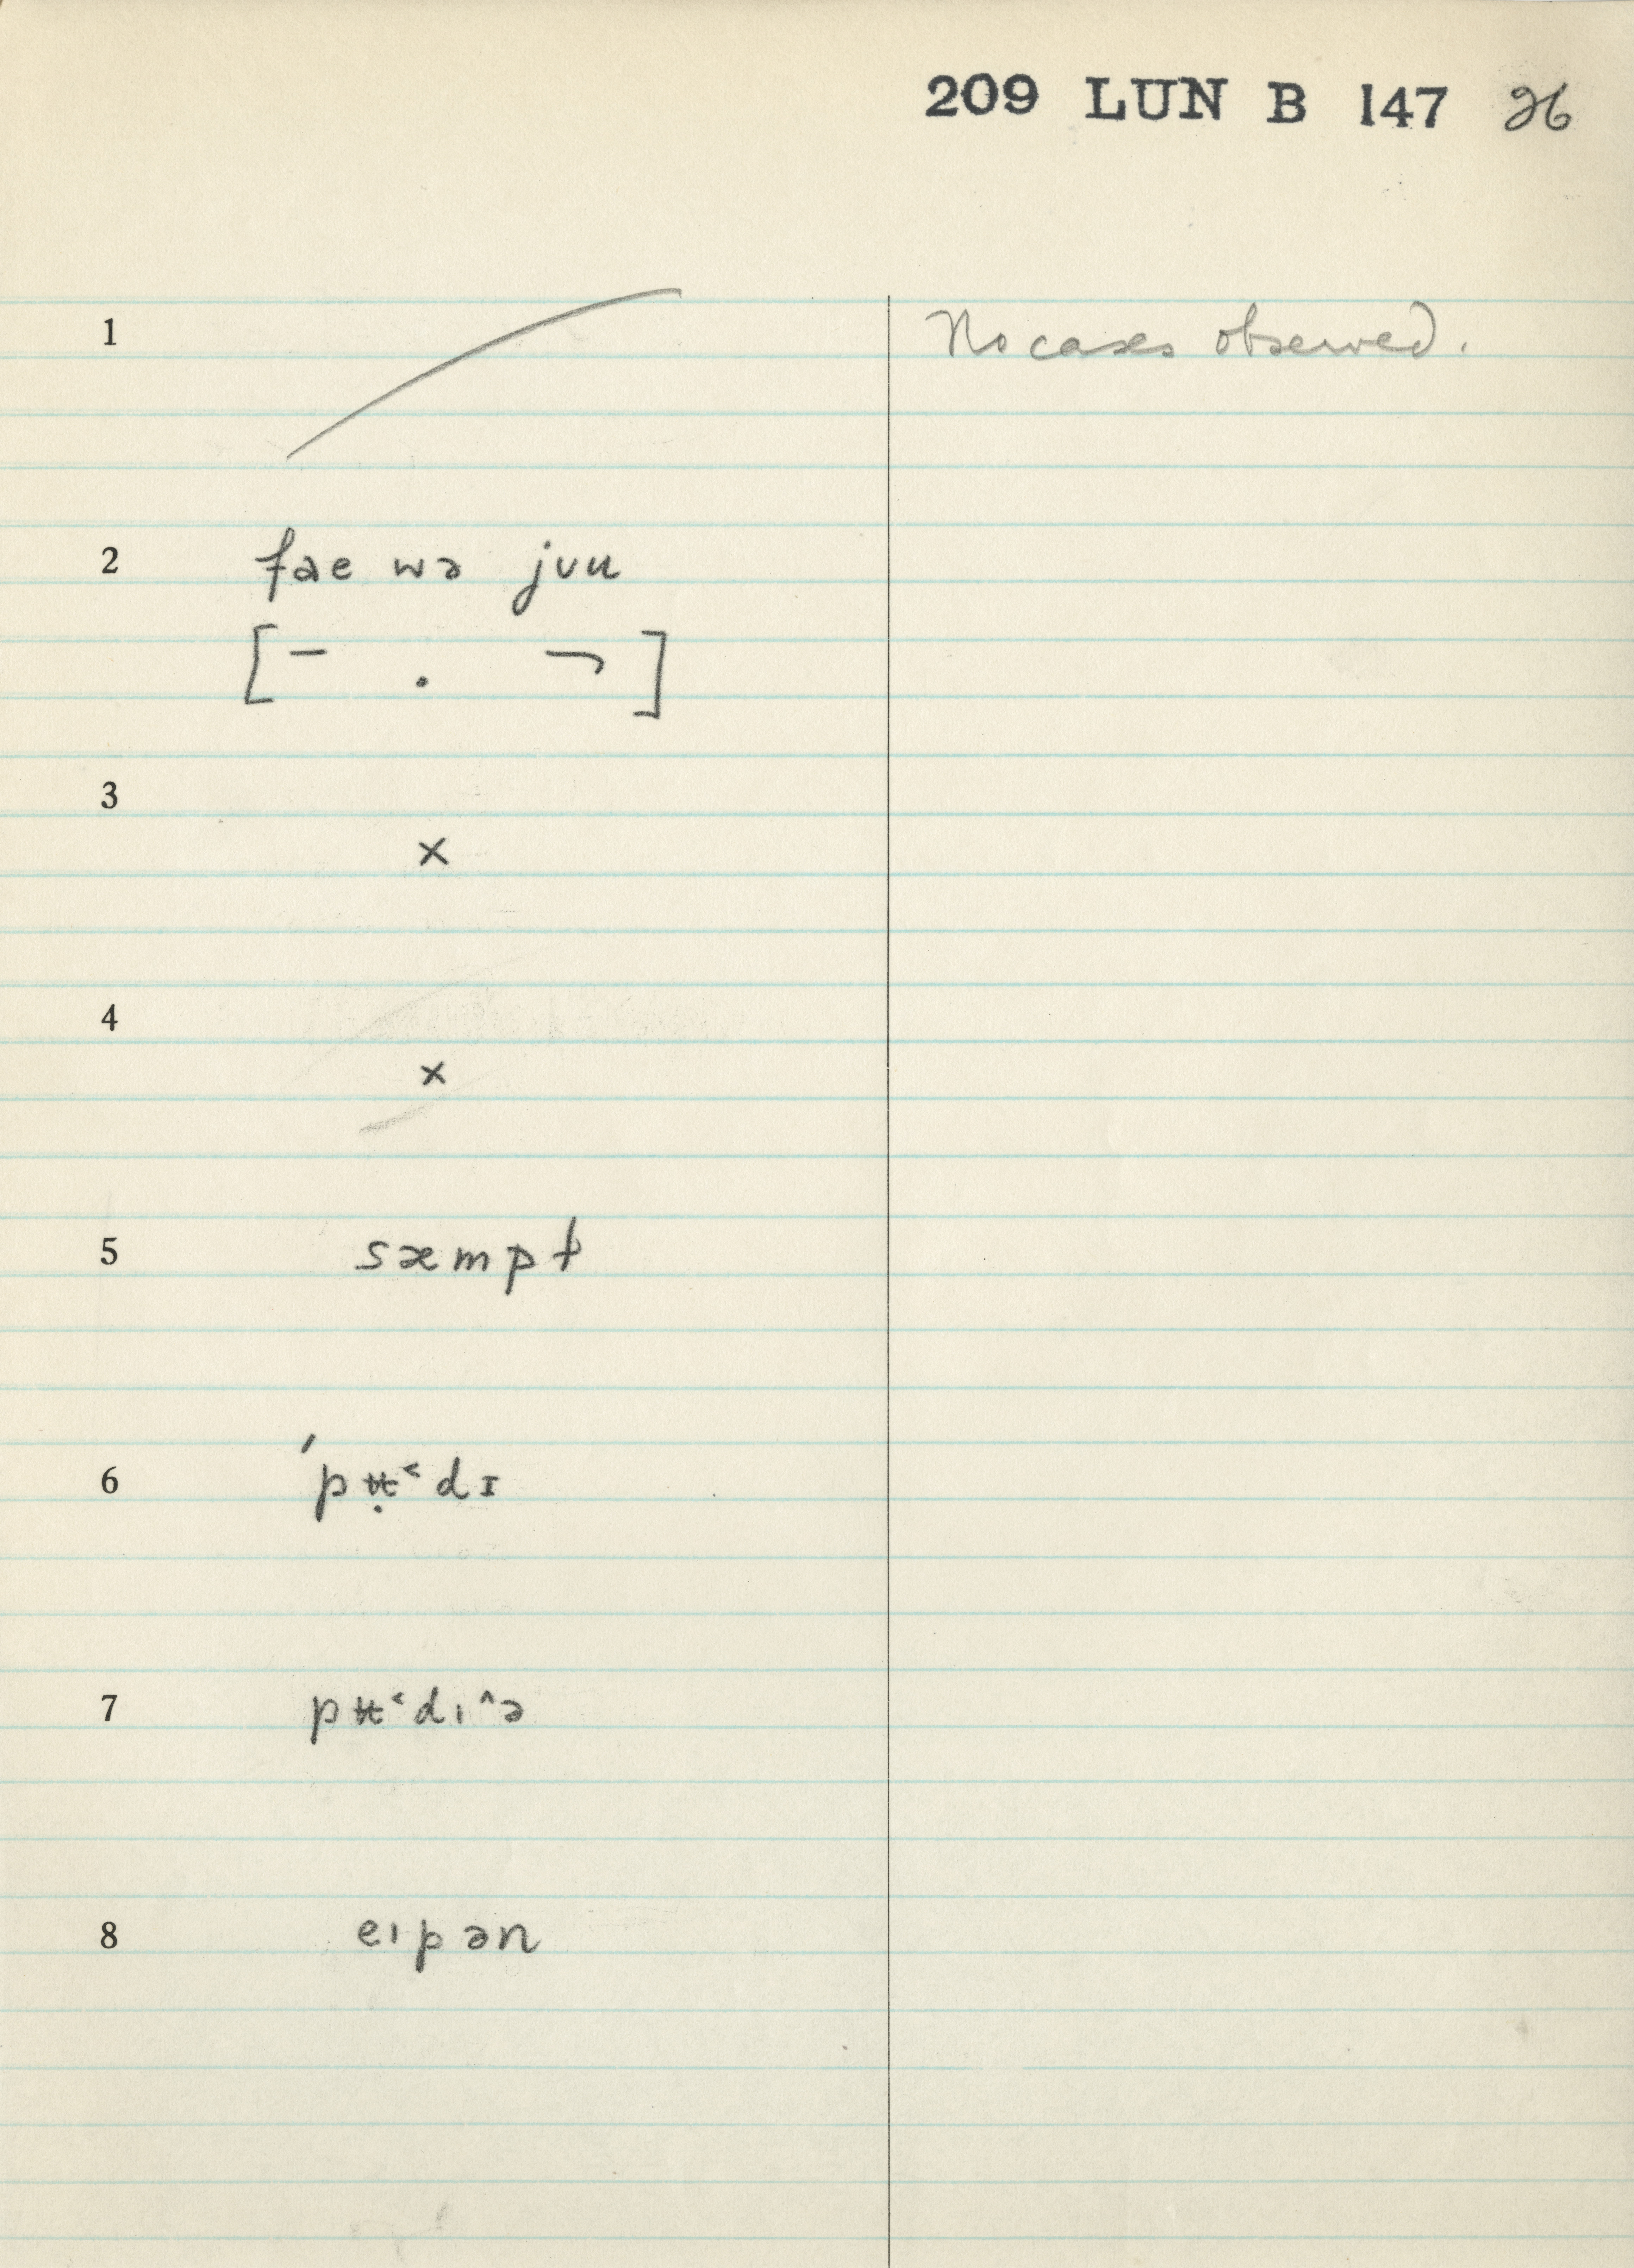 209 LUN B 147 26
1 No cases observed.
2 faɛ wə jʊu
[¯ . ¬]
3
×
4
×
5 sæmpt
6 ˈpʉ̣˂dɪ
7 pʉ˂dı˄ə
8 eıpən